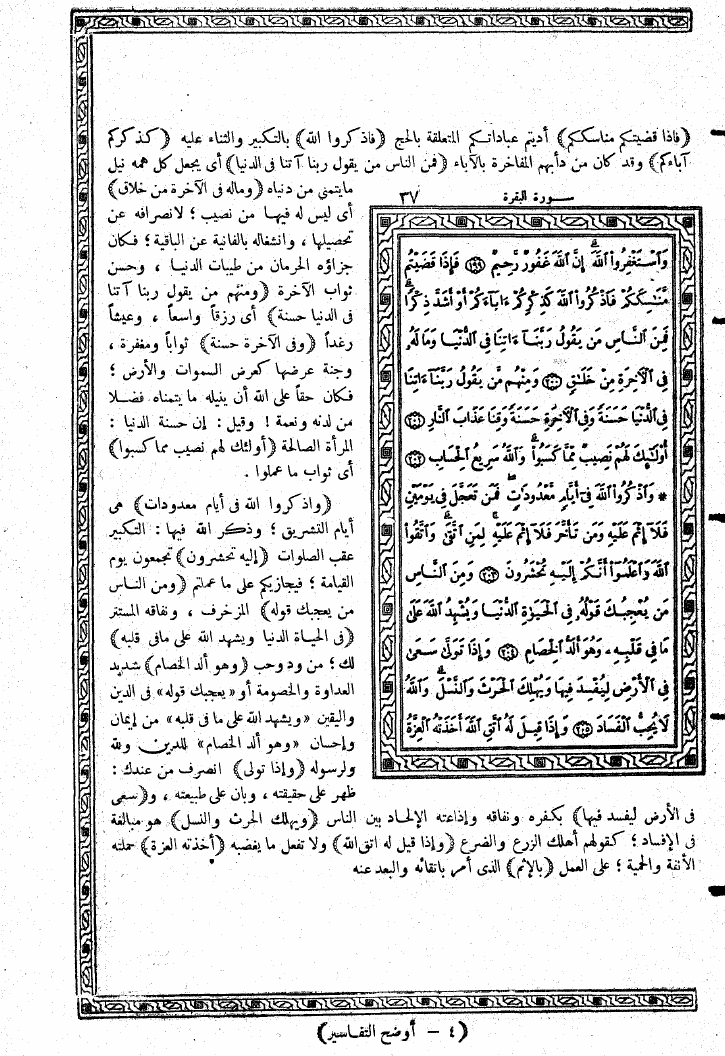 (فاذا قضيتم مناسككم) أديتم عباداتكم المتعلقة بالحج (فاذكروا الله) بالتكبير والثناء عليه (كذكركم
آباءكم) وقد كان من دأبهم المفاخرة بالآباء (فمن الناس من يقول ربنا آتنا فى الدنيا) أى يجعل كل همه نيل
ما يتمنى من دنياه (وماله فى الآخرة من خلاق)
أى ليس له فيها من نصيب ؛ لانصرافه عن
تحصيلها ، وانشغاله بالفانية عن الباقية ؛ فكان
جزاؤه الحرمان من طيبات الدنيا ، وحسن
ثواب الآخرة (ومنهم من يقول ربنا آتنا
فى الدنيا حسنة) أى رزقاً واسعاً ، وعيشاً
رغداً (وفى الآخرة حسنة) ثواباً ومغفرة ،
وجنة عرضها كعرض السموات والأرض ؛
فكان حقاً على الله أن ينيله ما يتمناه فضلا
من لدنه ونعمة ! وقيل : إن حسنة الدنيا :
المرأة الصالحة (أولئك لهم نصيب مما كسبوا)
أى ثواب ما عملوا .
(واذكروا الله فى أيام معدودات) هى
أيام التشريق ؛ وذكر الله فيها : التكبير
عقب الصلوات (إليه تحشرون) تجمعون يوم
القيامة ؛ فيجازيكم على ما عملتم (ومن الناس
من يعجبك قوله) المزخرف ، ونفاقه المستتر
(فى الحياة الدنيا ويشهد الله على مافى قلبه)
لك ؛ من ود وحب (وهو ألد الخصام) شديد
العداوة والخصومة أو «يعجبك قوله» فى الدين
واليقين «ويشهد الله على ما فى قلبه» من إيمان
وإحسان «وهو ألد الخصام» للدين ولله
ولرسوله (وإذا تولى) انصرف من عندك :
ظهر على حقيقته ، وبان على طبيعته ، و(سعى
فى الأرض ليفسد فيها) بكفره ونفاقه وإذاعته الإلحاد بين الناس (ويهلك الحرث والنسل) هو مبالغة
فى الإفساد ؛ كقولهم أهلك الزرع والضرع (وإذا قيل له اتق الله) ولا تفعل ما يغضبه (أخذته العزة) حملته
الأنفة والحمية ؛ على العمل (بالإثم) الذى أمر باتقائه والبعد عنه
سورة البقرة ٣٧
وَٱسْتَغْفِرُوا۟ ٱللَّهَ إِنَّ ٱللَّهَ غَفُورٌ رَّحِيمٌ ١٩٩ فَإِذَا قَضَيْتُم
مَّنَـٰسِكَكُمْ فَٱذْكُرُوا۟ ٱللَّهَ كَذِكْرِكُمْ ءَابَآءَكُمْ أَوْ أَشَدَّ ذِكْرًا
فَمِنَ ٱلنَّاسِ مَن يَقُولُ رَبَّنَآ ءَاتِنَا فِى ٱلدُّنْيَا وَمَا لَهُۥ
فِى ٱلْـَٔاخِرَةِ مِنْ خَلَـٰقٍ ٢٠٠ وَمِنْهُم مَّن يَقُولُ رَبَّنَآ ءَاتِنَا
فِى ٱلدُّنْيَا حَسَنَةً وَفِى ٱلْـَٔاخِرَةِ حَسَنَةً وَقِنَا عَذَابَ ٱلنَّارِ ٢٠١
أُو۟لَـٰٓئِكَ لَهُمْ نَصِيبٌ مِّمَّا كَسَبُوا۟ وَٱللَّهُ سَرِيعُ ٱلْحِسَابِ ٢٠٢
* وَٱذْكُرُوا۟ ٱللَّهَ فِىٓ أَيَّامٍ مَّعْدُودَٰتٍ فَمَن تَعَجَّلَ فِى يَوْمَيْنِ
فَلَآ إِثْمَ عَلَيْهِ وَمَن تَأَخَّرَ فَلَآ إِثْمَ عَلَيْهِ لِمَنِ ٱتَّقَىٰ وَٱتَّقُوا۟
ٱللَّهَ وَٱعْلَمُوٓا۟ أَنَّكُمْ إِلَيْهِ تُحْشَرُونَ ٢٠٣ وَمِنَ ٱلنَّاسِ
مَن يُعْجِبُكَ قَوْلُهُۥ فِى ٱلْحَيَوٰةِ ٱلدُّنْيَا وَيُشْهِدُ ٱللَّهَ عَلَىٰ
مَا فِى قَلْبِهِۦ وَهُوَ أَلَدُّ ٱلْخِصَامِ ٢٠٤ وَإِذَا تَوَلَّىٰ سَعَىٰ
فِى ٱلْأَرْضِ لِيُفْسِدَ فِيهَا وَيُهْلِكَ ٱلْحَرْثَ وَٱلنَّسْلَ وَٱللَّهُ
لَا يُحِبُّ ٱلْفَسَادَ ٢٠٥ وَإِذَا قِيلَ لَهُ ٱتَّقِ ٱللَّهَ أَخَذَتْهُ ٱلْعِزَّةُ
(٤ – أوضح التفاسير)